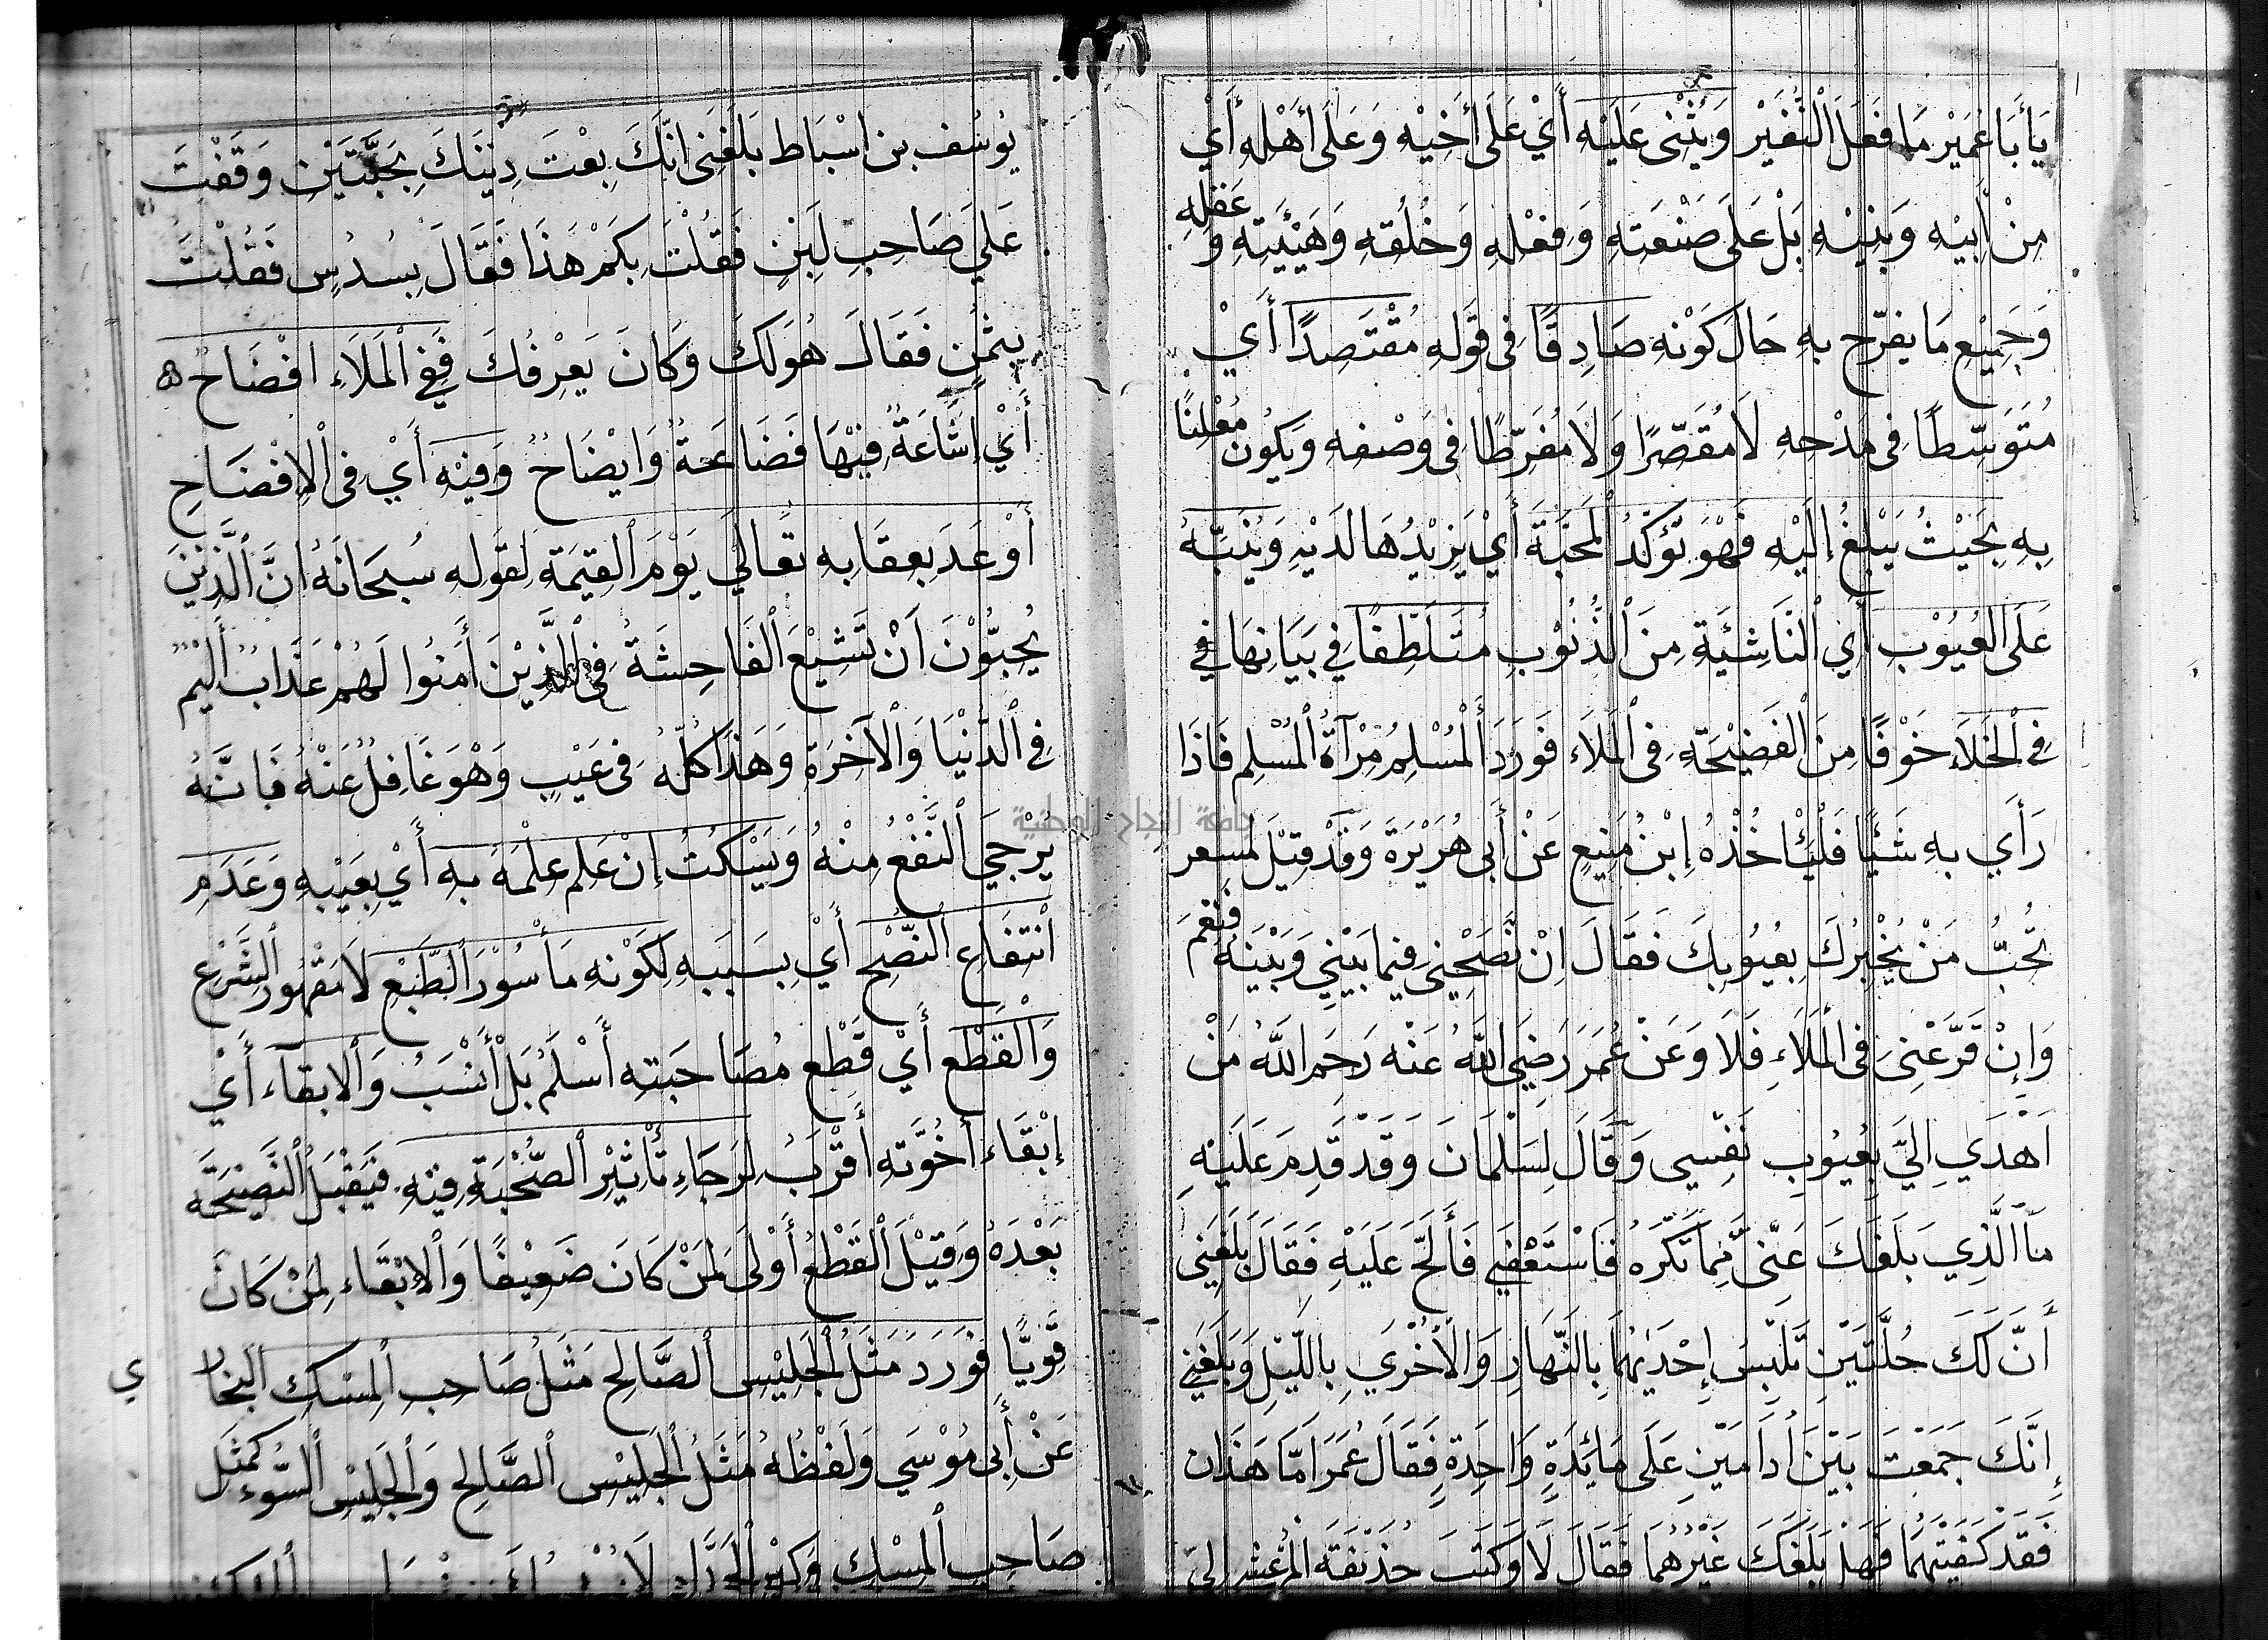 يَا أَبَا عُمَيْر مَا فَعَلَ ٱلنُّغَيْر وَيُثْنى عَلَيْه أَيْ عَلَى أَخِيْه وَعَلَى أَهْلِه أَيْ
مِنْ أَبِيْه وَبَنِيْه بَلْ عَلَى صَنْعَتِه وَفِعْلِه وَخُلُقِه وَهَيْئَتِه وَعَقْلِه
وَجَمِيْع مَا يفرّح بِه حَالَ كَوْنِه صَادِقًا فِى قَوْلِه مُقْتَصِدًا أَيْ
مُتَوَسِّطًا فِى مَدْحِه لَا مُقَصِّرًا وَلَا مُفَرِّطًا فِى وَصْفِه وَيَكُون مُعْلِنًا
بِه بِحَيْثُ يَبْلغُ إِلَيْه فَهْوَ تُؤَكِّدُ ٱلْمَحَبَّةَ أَيْ يَزِيْدُهَا لَدَيْهِ وَيُنَبِّهُ
عَلَى العُيُوْب أَيِ ٱلنَّاشِئَة مِنَ ٱلذُّنُوْب مُتَلَطِّفًا فِي بَيَانِهَا فِي
فِى ٱلْخَلَاء خَوْفًا مِنَ ٱلْفَضِيْحَة فِى ٱلْمَلَاء فَوَرَدَ ٱلْمُسْلِمُ مِرْآةُ ٱلْمُسْلِم فَاذَا
رَأَي بِه شَيْئًا فَلْيَأْخُذْهُ إِبْنُ مَنِيْع عَنْ أَبِى هُرَيْرَةَ وَقَدْ قِيْلَ لمسعر
تُحِبُّ مَنْ يُخْبِرُكَ بِعُيُوبِكَ فَقَالَ اِنْ نَصَحْنِى فِيْمَا بَيْنِي وَبَيْنَه فَنَعَمْ
وَإِنْ قَرَّعْنِىَ فِى ٱلْمَلَاءِ فَلَا وَعَنْ عُمَرَ رَضِيَ اللَّهُ عَنْه رَحِمَ اللَّهُ مَنْ
اَهْدَي اِلَيَّ بِعُيُوب نَفْسِي وَقَالَ لِسَلْمَانَ وَقَدْ قَدِمَ عَلَيْهِ
مَا ٱلَّذِي بَلَغَكَ عَنِّى مِمَّا تَكْرَهُ فَاسْتَعْفَي فَأَلَحَّ عَلَيْهِ فَقَالَ بَلَغَنِى
أَنَّ لَكَ حُلَّتَيْنِ تَلْبِسُ إِحْدَيهُمَا بِالنَّهَارِ وَالْأُخْرَي بِاللَّيْلِ وَبَلَغَنِي
إِنَّكَ جَمَعْتَ بَيْنَ أُدَامَيْنِ عَلَى مَائِدَةٍ وَاحِدَةٍ فَقَالَ عُمَرَ امَّا هَذَان
فَقَدْ كَفَيْتَهُمَا فَهَلْ بَلَغَكَ غَيْرَهُمَا فَقَالَ لَا وَكَتَبَ حُذَيْفَةَ الْمَرْعَشِي اِلَي
يُوسُف بن اسْبَاط بَلَغَنِى انَّكَ بِعْتَ دِيْنَكَ بِحَبَّتَيْن وَقَفْتَ
عَلَي صَاحِبِ لَبَنٍ فَقُلْتَ بِكَمْ هَذَا فَقَالَ بِسُدُسٍ فَقُلْتَ
بِثُمُنٍ فَقَالَ هُوَ لَكَ وَكَانَ يَعْرِفُكَ فَفِي ٱلْمَلَاء افْضَاحُ
أَيْ إِشَاعَةٌ فِيْهَا فَضَاعَةٌ وَايْضَاحُ وَفِيْه أَيْ فِى ٱلْإِفْضَاحِ
أَوْعَدَ بِعِقَابِه تَعَالَي يَوْمَ ٱلْقِيَمَة لِقَوْلِه سُبْحَانَهُ اِنَّ ٱلَّذِيْنَ
يُحِبُّوْنَ اَنْ تَشِيْعَ ٱلْفَاحِشَةُ فِى ٱلَّذِيْنَ أَمَنُوا لَهُمْ عَذَابٌ أَلِيْم
فِى ٱلدُّنْيَا وَٱلْآخِرَة وَهَذَا كُلُّهُ فِى عَيْبٍ وَهْوَ غَافِلُ عَنْهُ فَاِنَّهُ
يُرْجَيَ ٱلنَّفْعُ مِنْهُ وَيَسْكُتُ اِنْ عَلِم عِلْمَهُ بِه أَيْ بِعَيْبِهِ وَعَدَمِ
انْتِفَاع ٱلنُّصْحِ أَيْ بِسَبَبِه لِكَوْنِه مَأْسُوْرَ ٱلطَّبْعِ لَا مَقْهُوْرَ ٱلشَّرْع
وَالْقَطْع أَيْ قَطْع مُصَاحَبَتِه أَسْلَمُ بَلْ أَنْسَبُ وَٱلْابقآء أَيْ
إِبْقَاء أُخُوَّتِه أَقْرَبُ لِرَجَاءِ تَأْثِيْرِ ٱلصُّحْبَةِ فِيْه فَيَقْبَلُ ٱلنَّصِيْحَة
بَعْدَهُ وَقِيْلَ ٱلْقَطْعُ أَوْلَى لِمَنْ كَانَ ضَعِيْفًا وَٱلْاِبْقَاء لِمَنْ كَانَ
قَوِيًّا فَوَرَدَ مَثَلُ ٱلْجَلِيْسِ ٱلصَّالِحِ مَثَلُ صَاحِبِ ٱلْمِسْكِ البُخَارِي
عَنْ أَبِى مُوْسَي وَلَفْظُهُ مَثَلُ ٱلْجَلِيْسِ ٱلصَّالِحِ وَٱلْجَلِيْسِ ٱلسُّوْء كَمَثَلِ
صَاحِبِ ٱلْمِسْكِ وَكِيْرِ ٱلْحَدَّاد
جامعة النجاح الوطنية